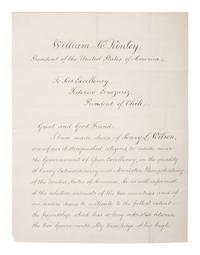 William McKinley,
President of the United States of America,
To His Excellency
Federico Errazuriz,
President of Chile.
Great and Good Friend:
I have made choice of Henry L. Wilson,
one of our distinguished citizens to reside near
the Government of Your Excellency, in the quality
of Envoy Extraordinary and Minister Plenipotentiary
of the United States of America. He is well informed
of the relative interests of the two countries and of
our sincere desire to cultivate to the fullest extent
the friendship which has so long subsisted between
the two Governments. My knowledge of his high